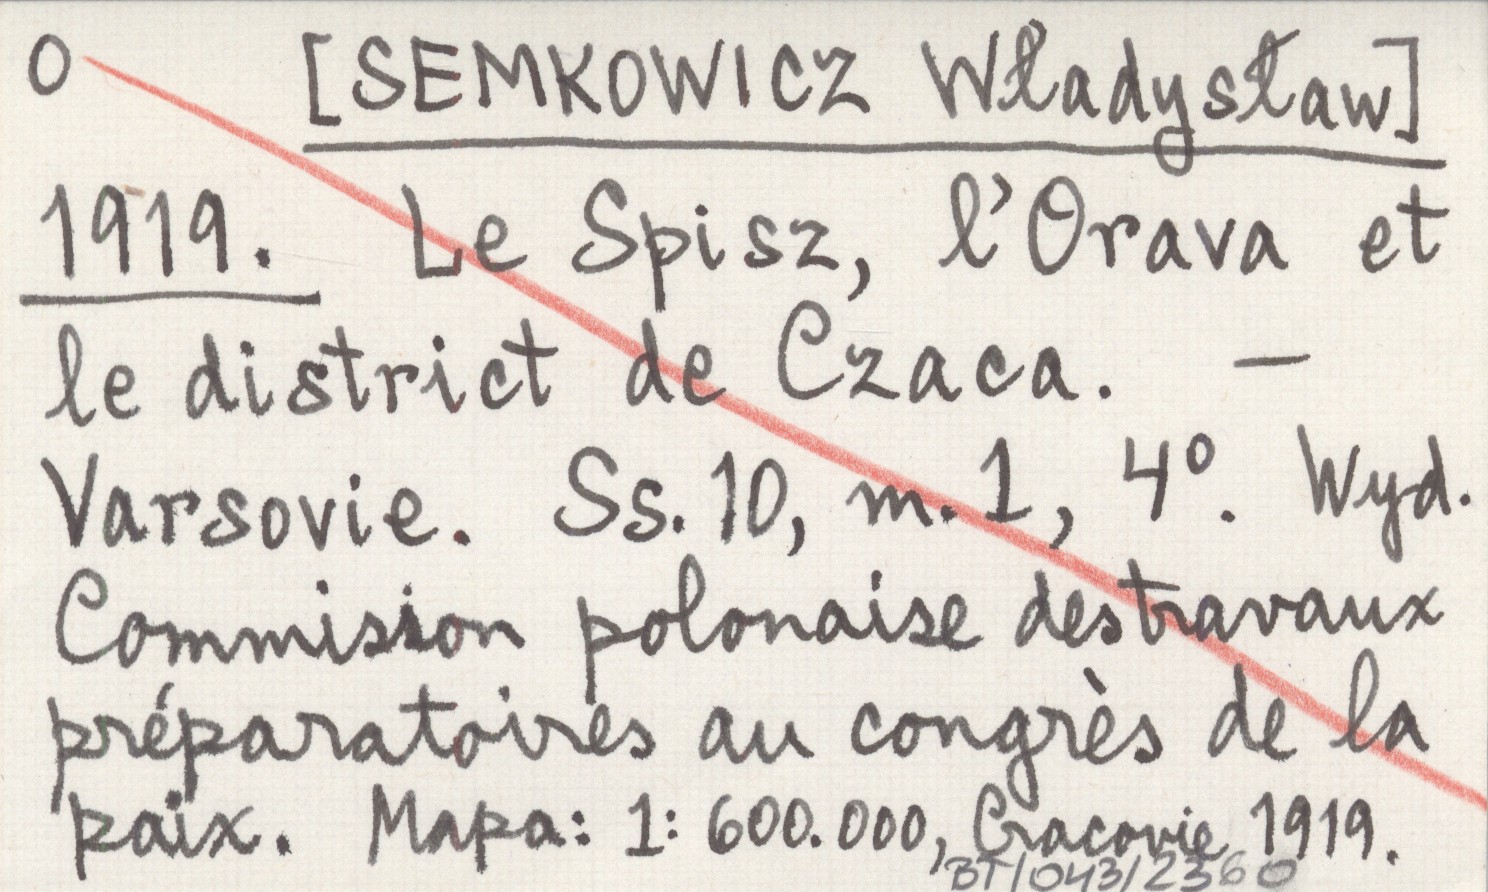 O [SEMKOWICZ Władysław]
1919. Le Spisz, l'Orava et
le district de Czaca. —
Varsovie. Ss. 10, m. 1, 4°. Wyd.
Commission polonaise des travaux
préparatoires au congrès de la
paix. Mapa: 1: 600.000, Cracovie 1919.
BT/043/2360